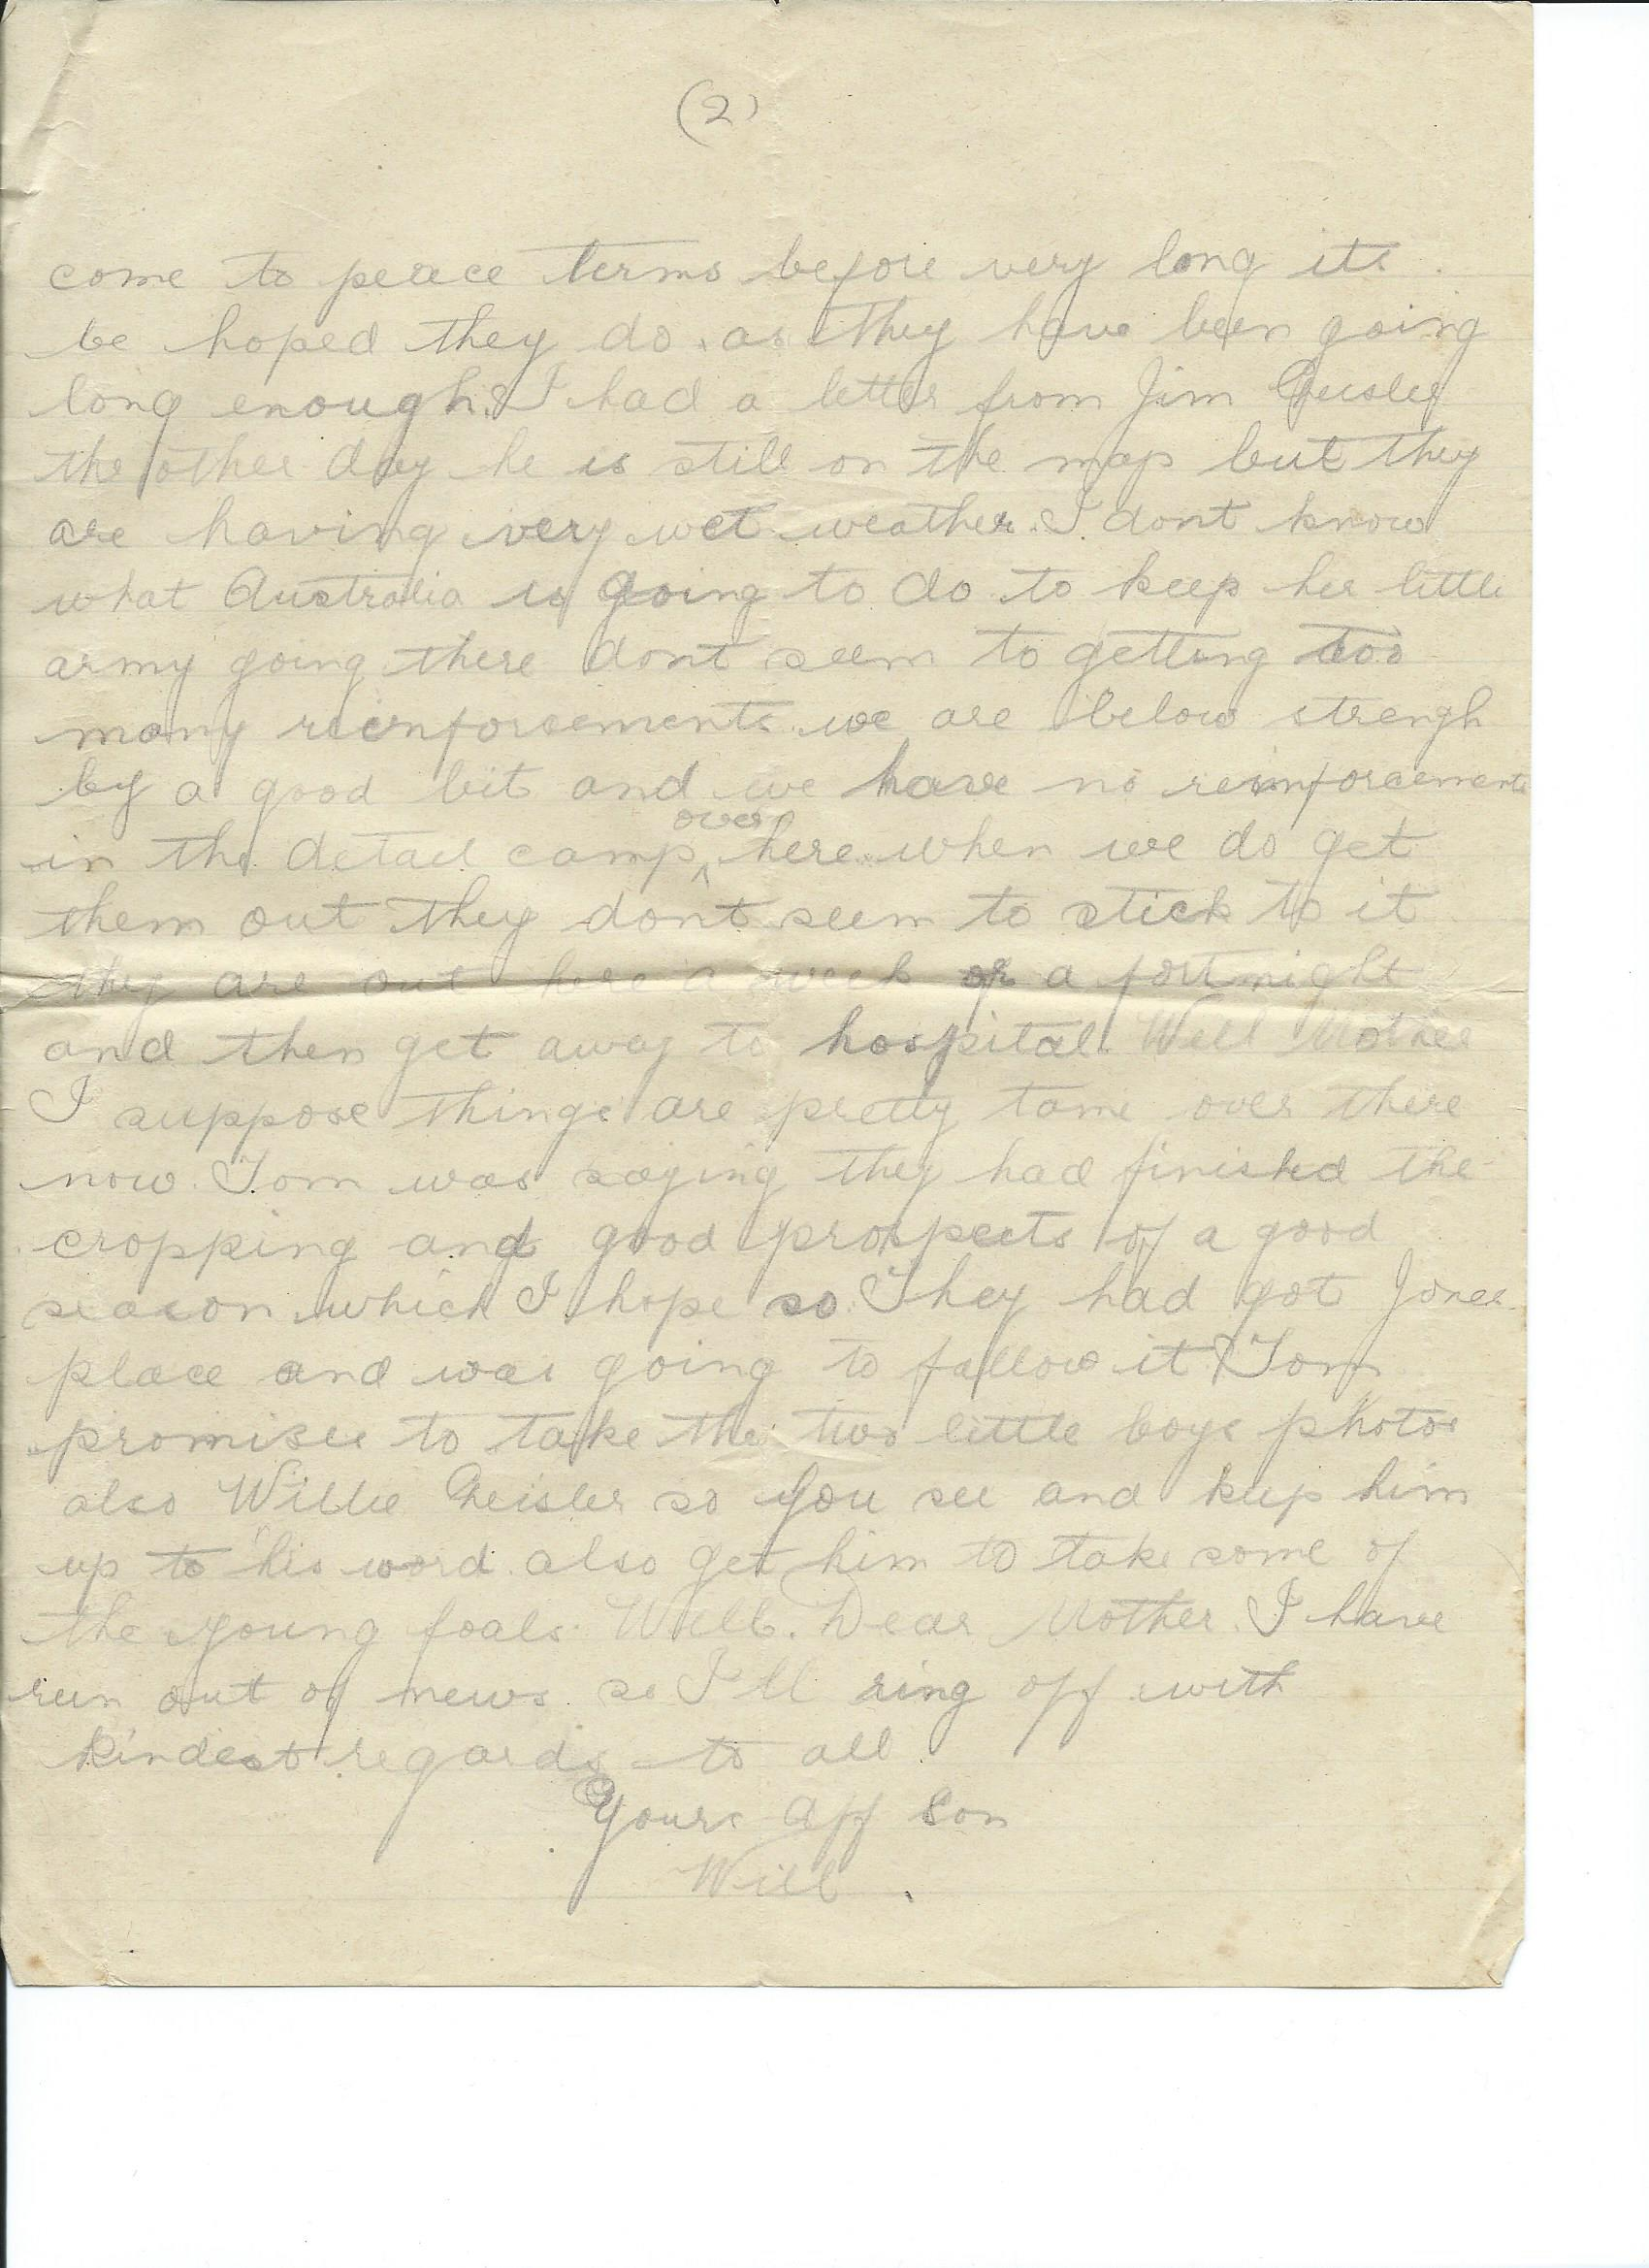 (2)
come to peace terms before very long its
be hoped they do. as they have been going
long enough. I had a letter from Jim
the other day he is still on the map but they
are having very wet weather. I dont know
what Australia is going to do to keep her little
army going there dont seem to getting too
many reinforsements. we are below strengh
by a good bit and we have no reinforcements
in the detail camp over here. when we do get
them out they dont seem to stick to it
they are out here a week or a fortnight
and then get away to hospital. Well Mother
I suppose things are pretty tame over there
now. Tom was saying they had finished the
cropping and good prospects of a good
season which I hope so. They had got Jones
place and was going to fallow it. Tom
promises to take the two little boys photos
also Willie Gheisler so you see and keep him
up to his word. also get him to take some of
the young foals. Well. Dear Mother. I have
run out of news so I'll ring off with
kindest regards to all.
Yours aff Son
Will.